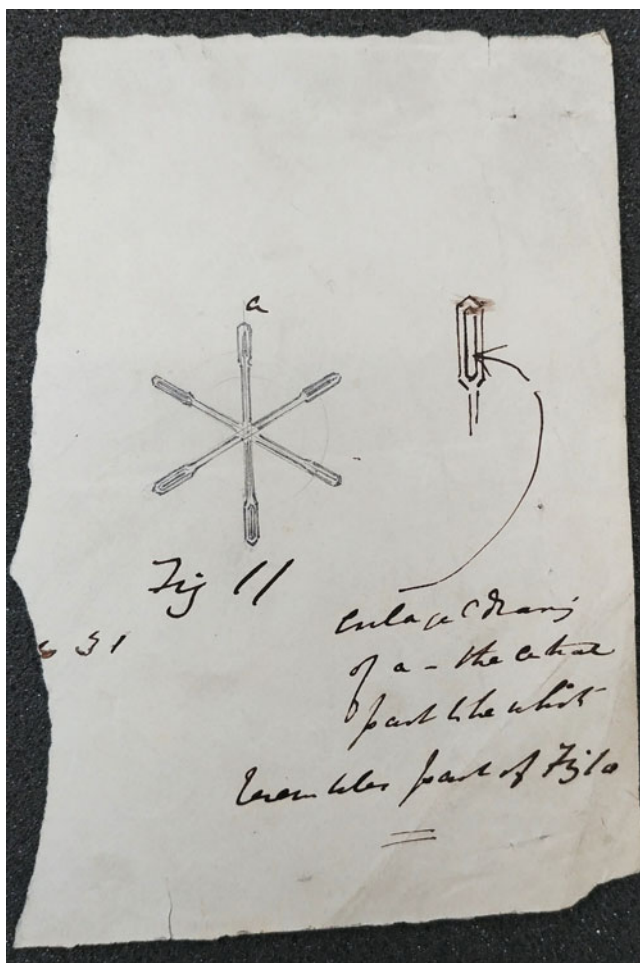 a
Fig 11
31
enlarged drawing
of a - the central
part the white
resembles part of Fig 10